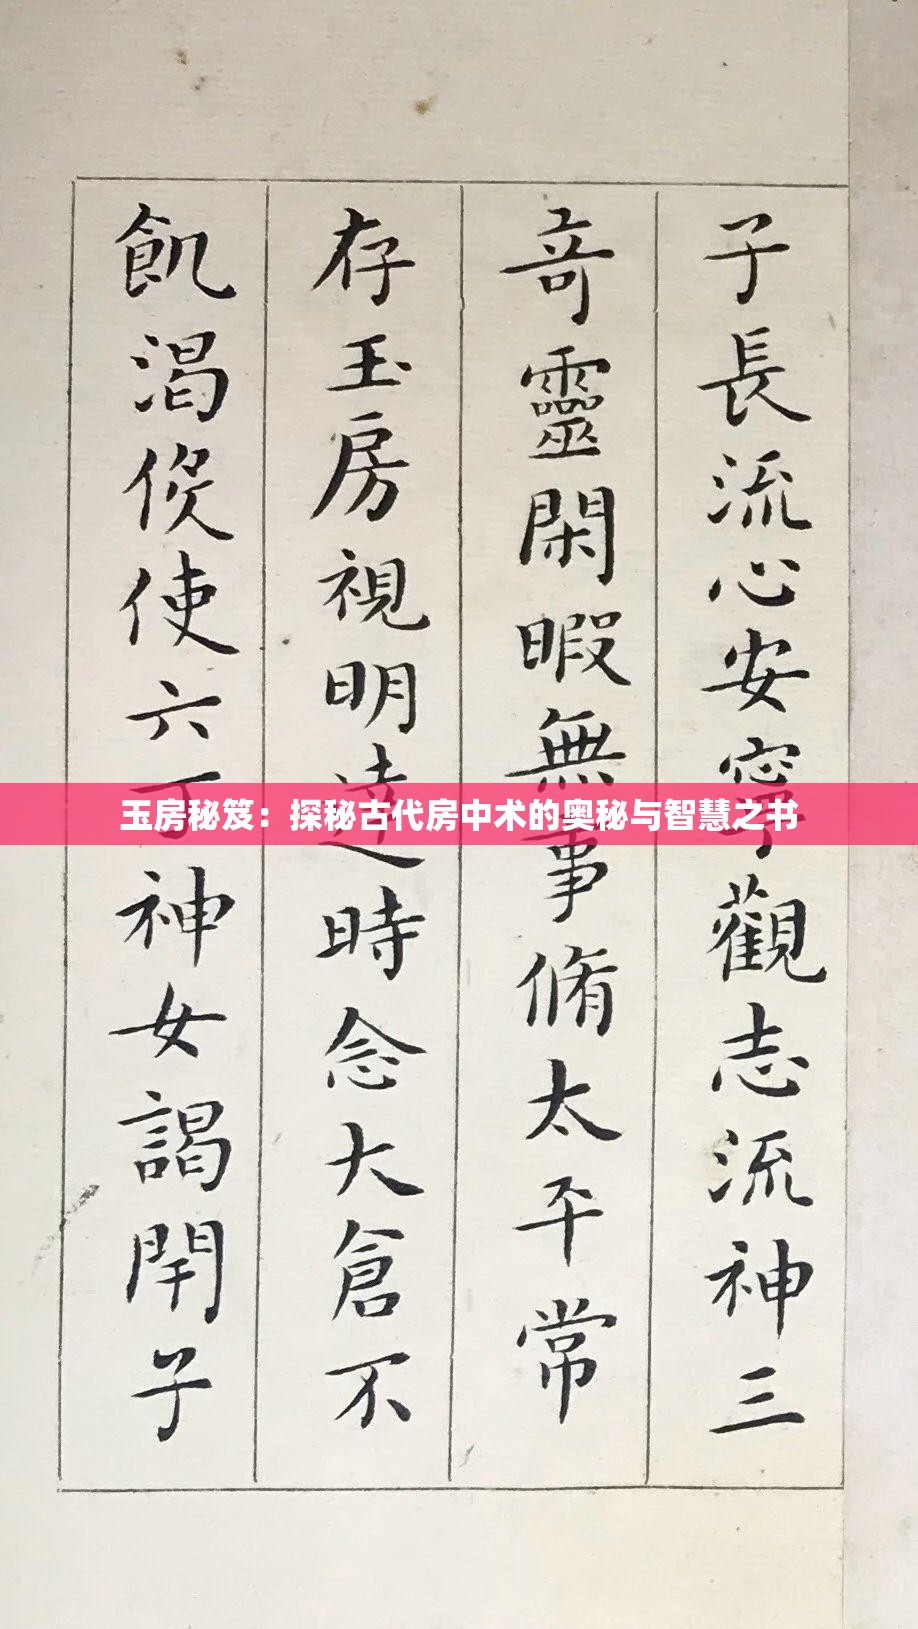 子長流心安寧觀志流神三
竒靈閑暇無事脩太平常
存玉房視明達時念大倉不
飢渴伇使六丁神女謁閇子
玉房秘笈：探秘古代房中术的奥秘与智慧之书